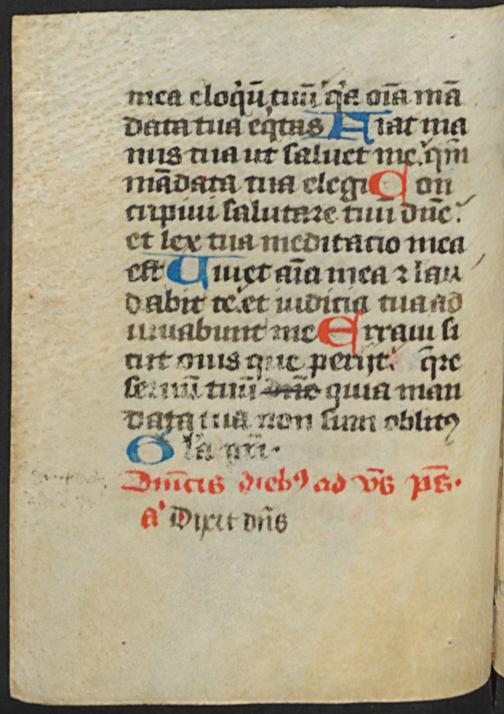 mea eloqͥū tuū q̄a oīa mā
data tua eqͥtas Fiat ma
nus tua ut saluet me. qm̄
mādata tua elegi Con
cupiui salutare tuū dn̄e:
et lex tua meditacio mea
est Uiuet aīa mea ⁊ lau
dabit te. et iudicia tua ad
iuuabunt me Erraui si
cut ouis que perijt: q̄re
seruū tuū dn̄e quia man
data tua non sum oblitꝰ
Gl'a pr̄i.
Dn̄icis diebꝰ ad vs̄ ps̄.
a' Dixit dn̄s